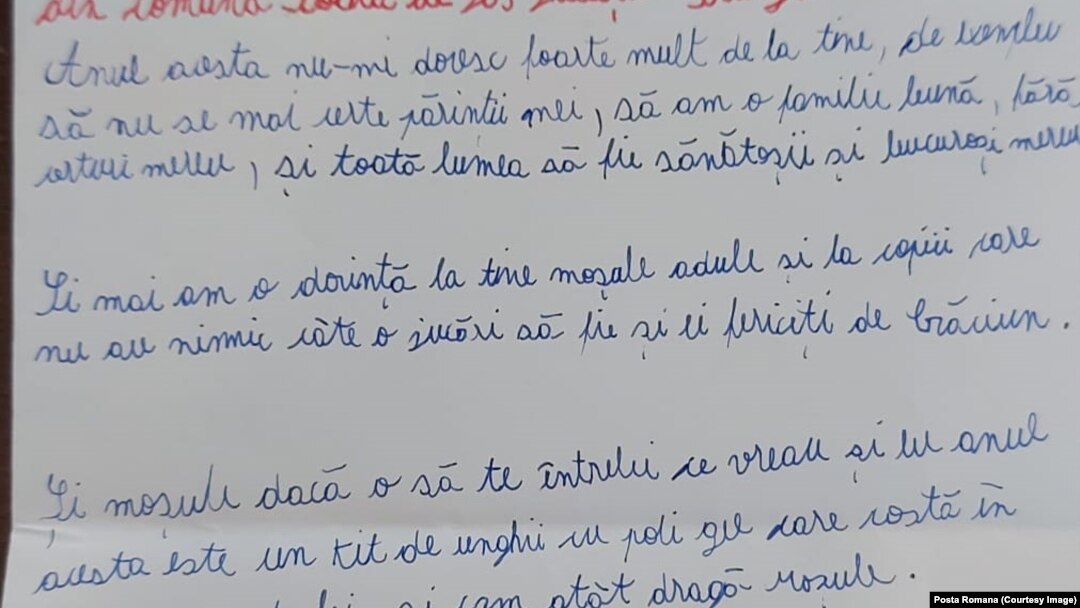 din romană
Anul acesta nu-mi doresc foarte mult de la tine, de exemplu
să nu se mai certe părinții mei, să am o familii bună, fără
certuri mereu, și toată lumea să fie sănătoșii și bucuroși mereu
Și mai am o dorință la tine moșule adule și la copiii care
nu au nimic câte o jucări să fie și ei fericiți de Crăciun.
Și moșule dacă o să te întrebi ce vreau și eu anul
acesta este un kit de unghii cu poli gel care costă în
și cam atât dragă moșule.
Posta Romana (Courtesy Image)